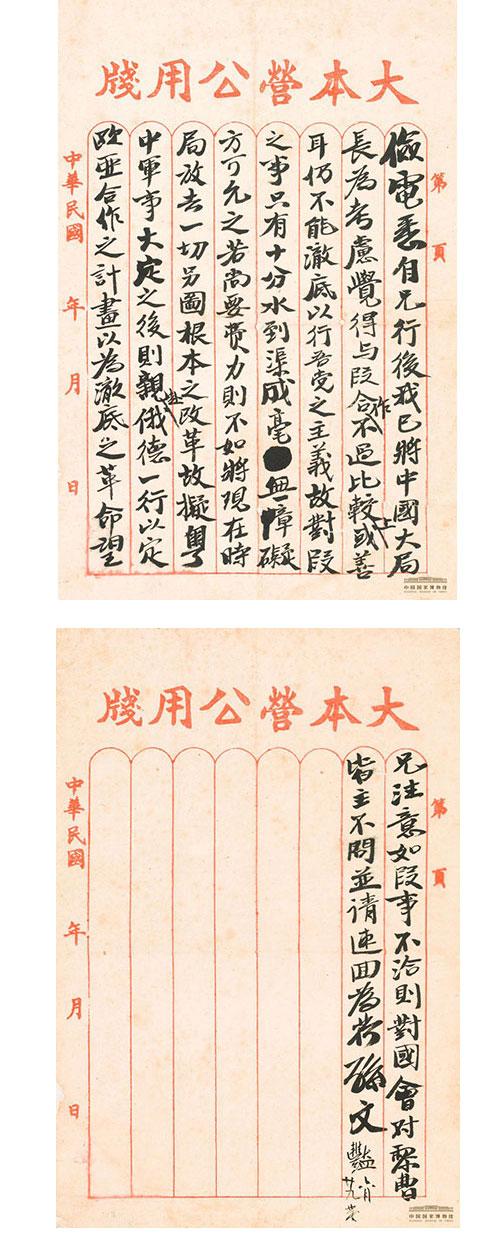 大本營公用牋
第 頁
儉電悉自兄行後我已將中國大局
長為考慮覺得与段合作不過比較上或善
耳仍不能澈底以行吾党之主義故對段
之事只有十分水到渠成毫無障礙
方可允之若尚要費力則不如將現在時
局放去一切另圖根本之改革故擬粤
中軍事大定之後則親赴俄德一行以定
欧亚合作之計畫以為澈底之革命望
中華民國 年 月 日
中国国家博物馆
大本營公用牋
第 頁
兄注意如段事不洽則對國會对黎曹
皆主不問並请速回為荷孫文艷
中華民國 年 月 日
中国国家博物馆